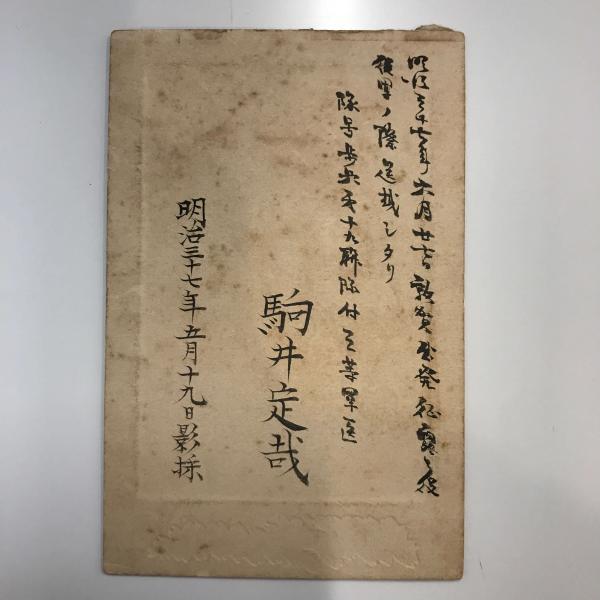 明治三十七年六月廿七日敦賀出発征露ノ役
従軍ノ際送越シタリ
隊号歩兵第十九聯隊付三等軍医
駒井定哉
明治三十七年五月十九日影採